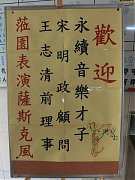 歡迎
永續音樂才子
宋明政顧問
王志清前理事
蒞園表演薩斯克風